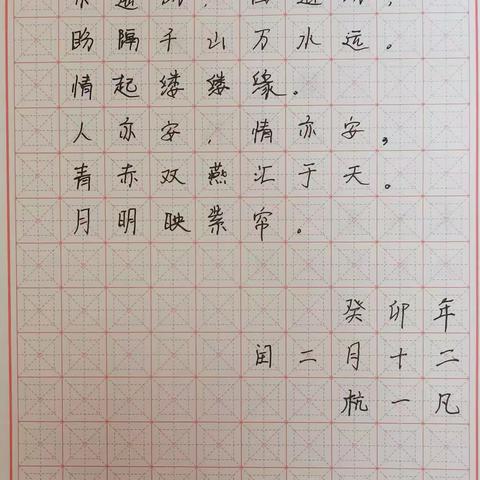 盼隔千山万水远。
情起缕缕缘。
人亦安，情亦安，
青赤双燕汇于天。
月明映紫帘。
癸卯年
闰二月十二
杭一凡